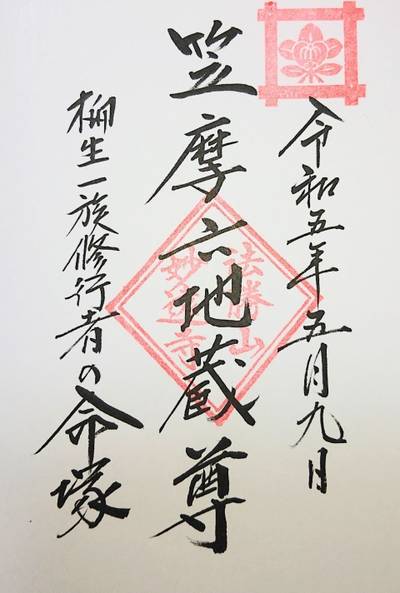 令和五年五月九日
笠摩六地蔵尊
法勝山
妙蓮寺
柳生一族修行者の命塚